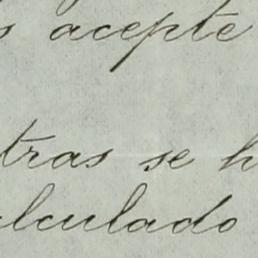 s acepte
tras se h
lculado